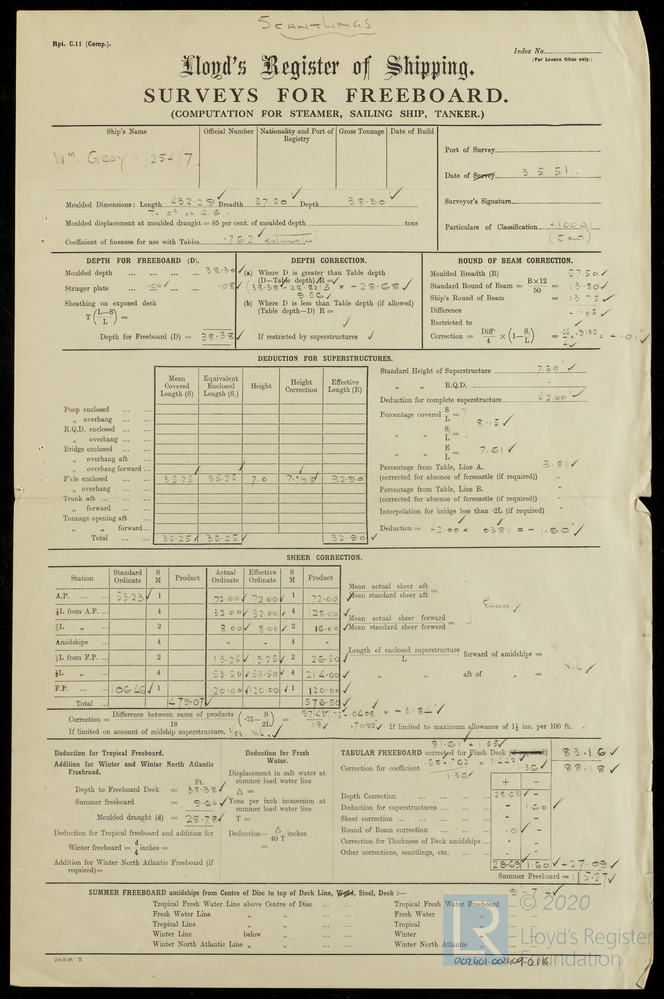 SCANTLINGS
Rpt. C.11 (Comp.).
Index No.
(For London Office only.)
Lloyd's Register of Shipping.
SURVEYS FOR FREEBOARD.
(COMPUTATION FOR STEAMER, SAILING SHIP, TANKER.)
Ship's Name Official Number Nationality and Port of Registry Gross Tonnage Date of Build
Wm. Gray 254/7
Port of Survey
Date of Survey 3.5.51.
Surveyor's Signature
Particulars of Classification +100A1
Moulded Dimensions: Length 432.25 Breadth 57.50 Depth 38.30
Moulded displacement at moulded draught = 85 per cent. of moulded depth tons
Coefficient of fineness for use with Tables .762
DEPTH FOR FREEBOARD (D).
Moulded depth 38.30
Stringer plate .08
Sheathing on exposed deck
T (L—S / L) =
Depth for Freeboard (D) = 38.38
DEPTH CORRECTION.
(a) Where D is greater than Table depth
(D—Table depth) R =
(38.38 - 28.82) 3 = -28.68
9.56
(b) Where D is less than Table depth (if allowed)
(Table depth—D) R =
If restricted by superstructures
ROUND OF BEAM CORRECTION.
Moulded Breadth (B) 57.50
Standard Round of Beam = B×12 / 50 = 13.80
Ship's Round of Beam = 13.75
Difference - .05
Restricted to
Correction = Diff / 4 × (1— S₁ / L) = - .01
DEDUCTION FOR SUPERSTRUCTURES.
Mean Covered Length (S) Equivalent Enclosed Length (S₁) Height Height Correction Effective Length (E)
Poop enclosed
„ overhang
R.Q.D. enclosed
„ overhang
Bridge enclosed
„ overhang aft
„ overhang forward
F'cle enclosed 35.25 35.25 7.0 32.90
„ overhang
Trunk aft
„ forward
Tonnage opening aft
„ „ forward
Total 35.25 35.25 32.90
Standard Height of Superstructure 7.50
„ „ R.Q.D. -
Deduction for complete superstructure 42.00
Percentage covered S / L =
„ „ S₁ / L = 8.15
„ „ E / L = 7.61
Percentage from Table, Line A. 3.81
(corrected for absence of forecastle (if required))
Percentage from Table, Line B. -
(corrected for absence of forecastle (if required))
Interpolation for bridge less than ·2L (if required) -
Deduction = -42.00 x .0381 = -1.60
SHEER CORRECTION.
Station Standard Ordinate S M Product Actual Ordinate Effective Ordinate S M Product
A.P. 53.23 1 72.00 72.00 1 72.00
⅙L from A.P. 4 32.00 32.00 4 128.00
⅓L „ 2 8.00 8.00 2 16.00
Amidships 4 - - 4 -
⅓L from F.P. 2 13.25 13.25 2 26.50
⅙L „ 4 53.50 53.50 4 214.00
F.P. 106.46 1 120.00 120.00 1 120.00
Total 479.07 576.50
Mean actual sheer aft
Mean standard sheer aft =
Mean actual sheer forward
Mean standard sheer forward =
Length of enclosed superstructure / L forward of amidships =
„ „ aft of „ = NIL
Correction = Difference between sums of products / 18 (·75— S / 2L) = = - 3.84
If limited on account of midship superstructure. Yes. NIL. If limited to maximum allowance of 1½ ins. per 100 ft.
Deduction for Tropical Freeboard.
Addition for Winter and Winter North Atlantic Freeboard.
Ft.
Depth to Freeboard Deck = 38.38
Summer freeboard = 9.60
Moulded draught (d) = 28.78
Deduction for Tropical freeboard and addition for
Winter freeboard = d / 4 inches =
Addition for Winter North Atlantic Freeboard (if required) =
Deduction for Fresh Water.
Displacement in salt water at summer load water line
Δ =
Tons per inch immersion at summer load water line
T =
Deduction= Δ / 40 T inches
=
TABULAR FREEBOARD corrected for Flush Deck (if required) 83.16
Correction for coefficient .68+.762 / 1.36 88.18
+ -
Depth Correction 28.68 -
Deduction for superstructures - 1.60
Sheer correction - -
Round of Beam correction .01 -
Correction for Thickness of Deck amidships - -
Other corrections, scantlings, etc. - -
28.69 1.60 +27.09
Summer Freeboard = 115.27
SUMMER FREEBOARD amidships from Centre of Disc to top of Deck Line, Wood, Steel, Deck :—
Tropical Fresh Water Line above Centre of Disc Tropical Fresh Water Freeboard
Fresh Water Line „ „ Fresh Water „
Tropical Line „ „ Tropical „
Winter Line below „ Winter „
Winter North Atlantic Line „ „ Winter North Atlantic „
LR
© 2020
Lloyd's Register
Foundation
002401-002409-0116